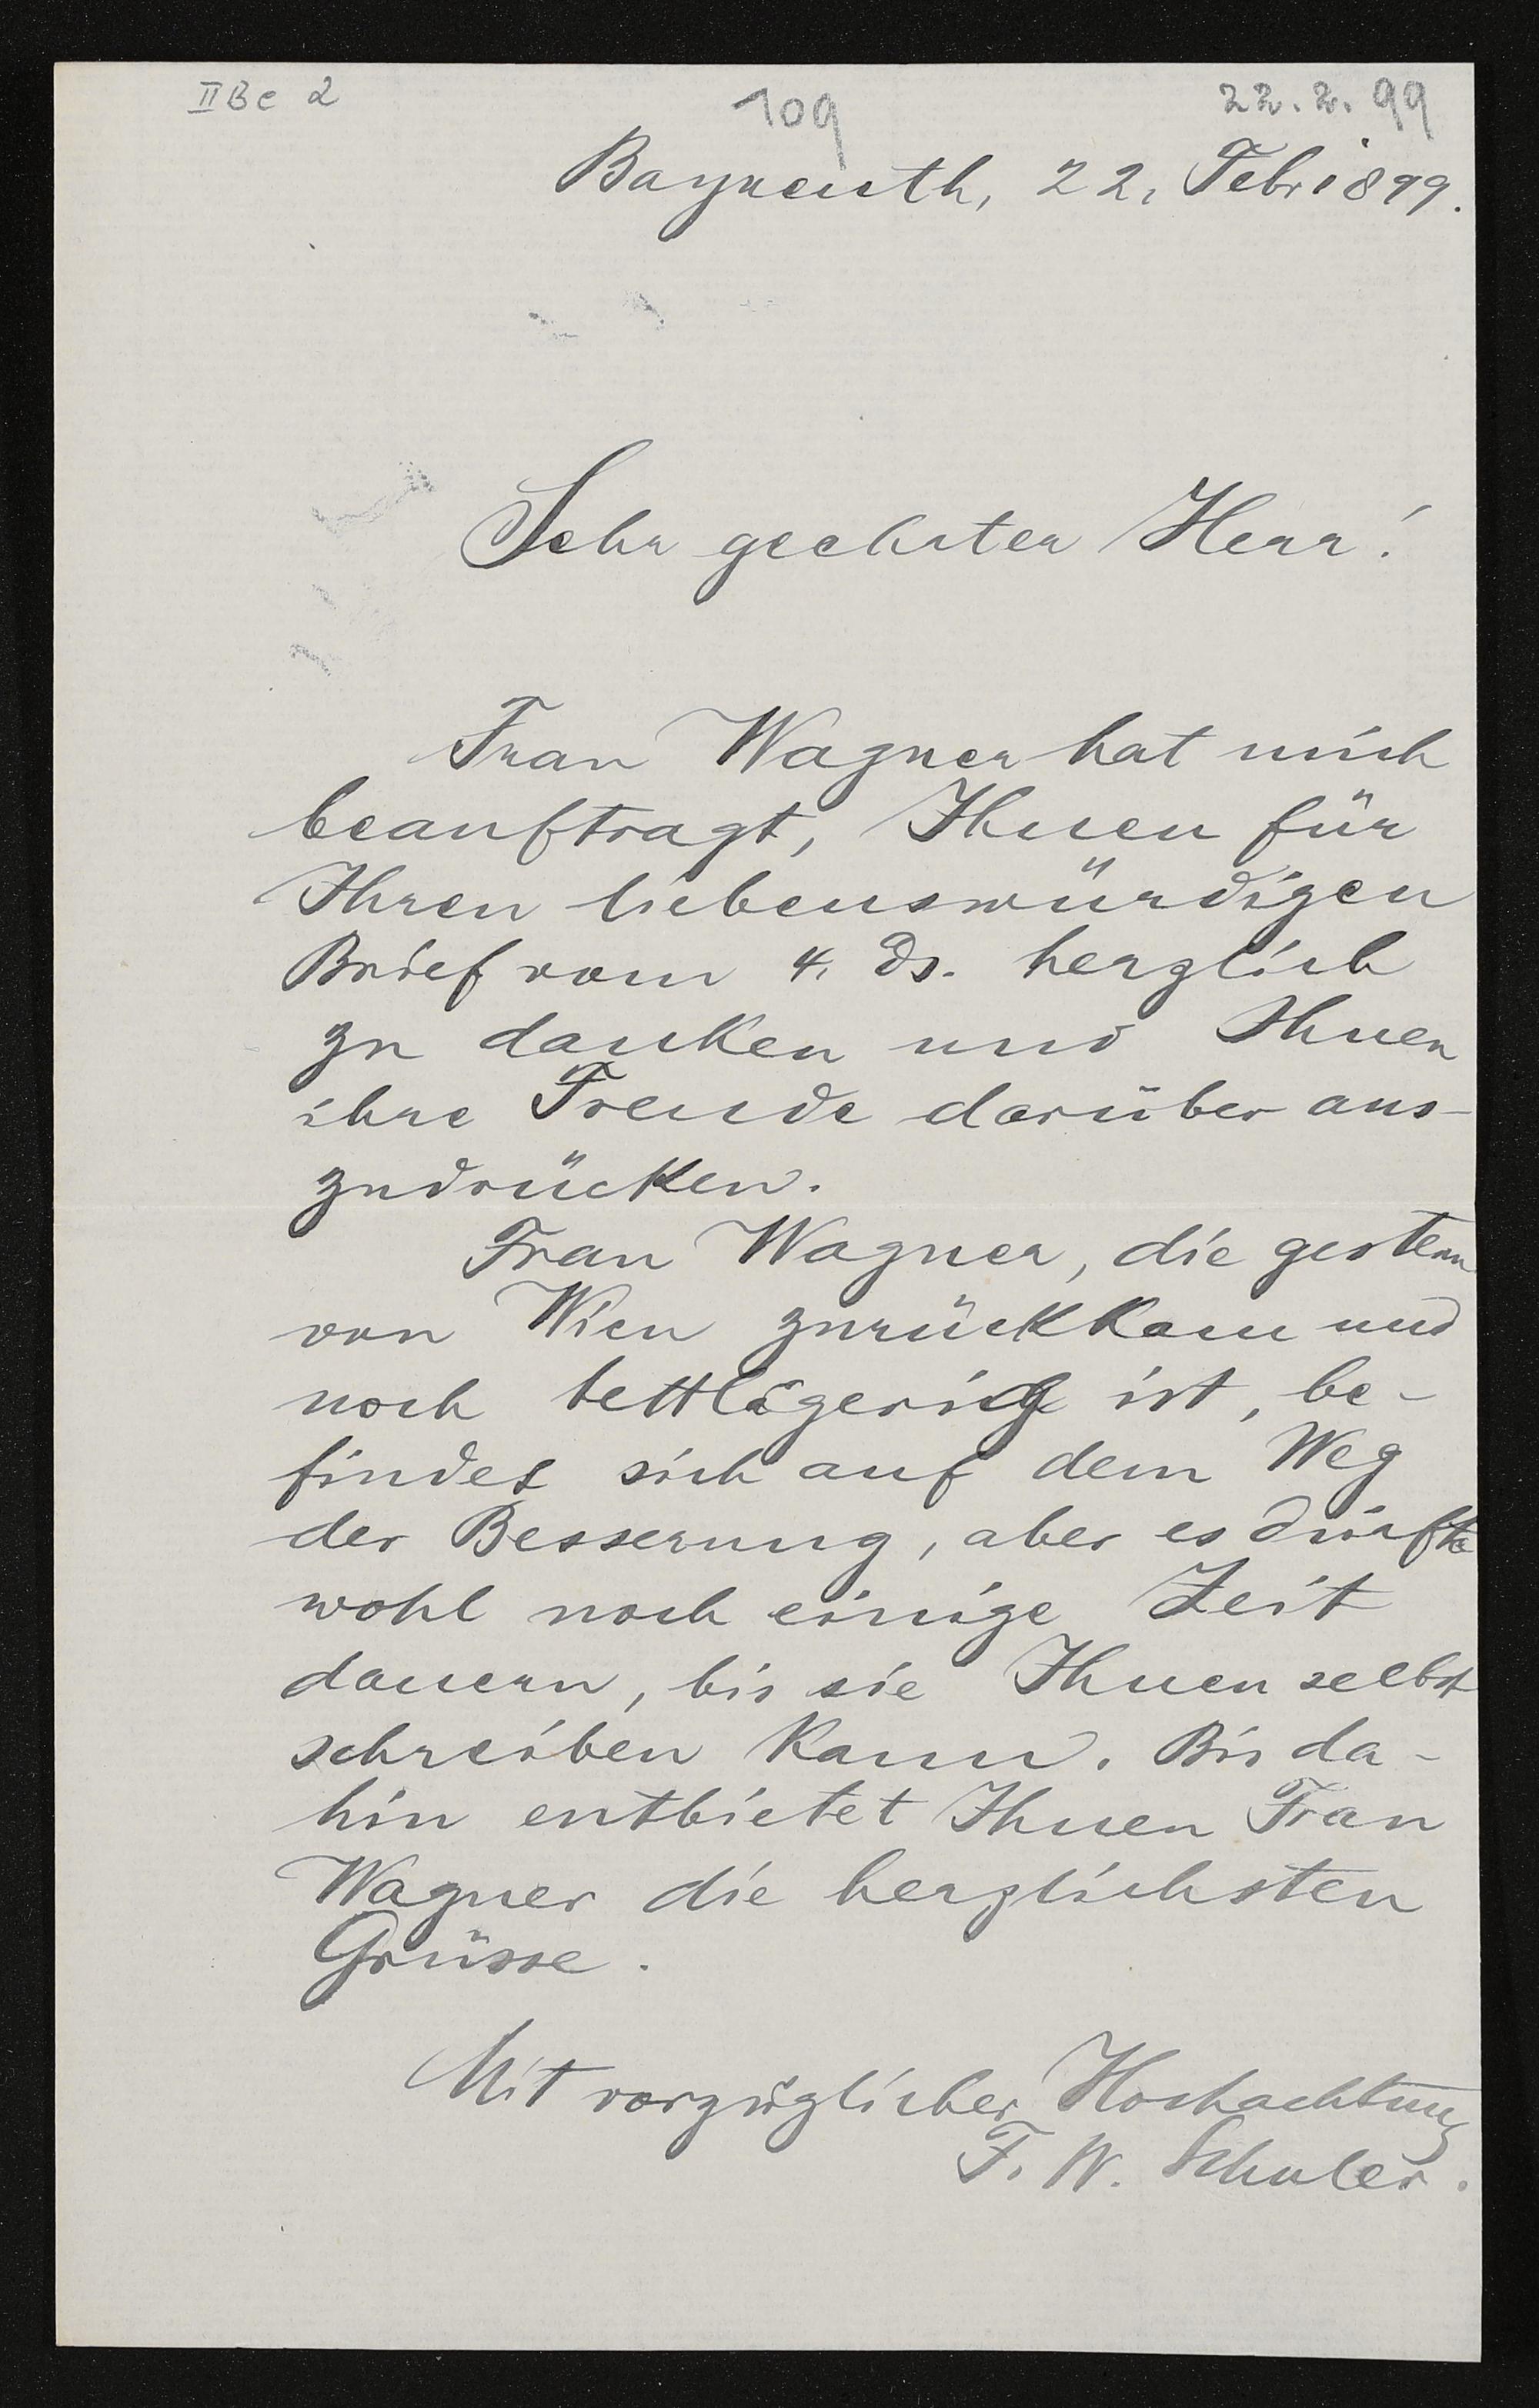 II Be 2
109
22. 2. 99
Bayreuth, 22. Febr 1899.
Sehr geehrter Herr!
Frau Wagner hat mich
beauftragt, Ihnen für
Ihren liebenswürdigen
Brief vom 4. ds. herzlich
zu danken und Ihnen
ihre Freude darüber aus-
zudrücken.
Frau Wagner, die gestern
von Wien zurückkam und
noch bettlägerig ist, be-
findet sich auf dem Weg
der Besserung, aber es dürfte
wohl noch einige Zeit
dauern, bis sie Ihnen selbst
schreiben kann. Bis da-
hin entbietet Ihnen Frau
Wagner die herzlichsten
Grüsse.
Mit vorzüglicher Hochachtung
F. W. Schuler.